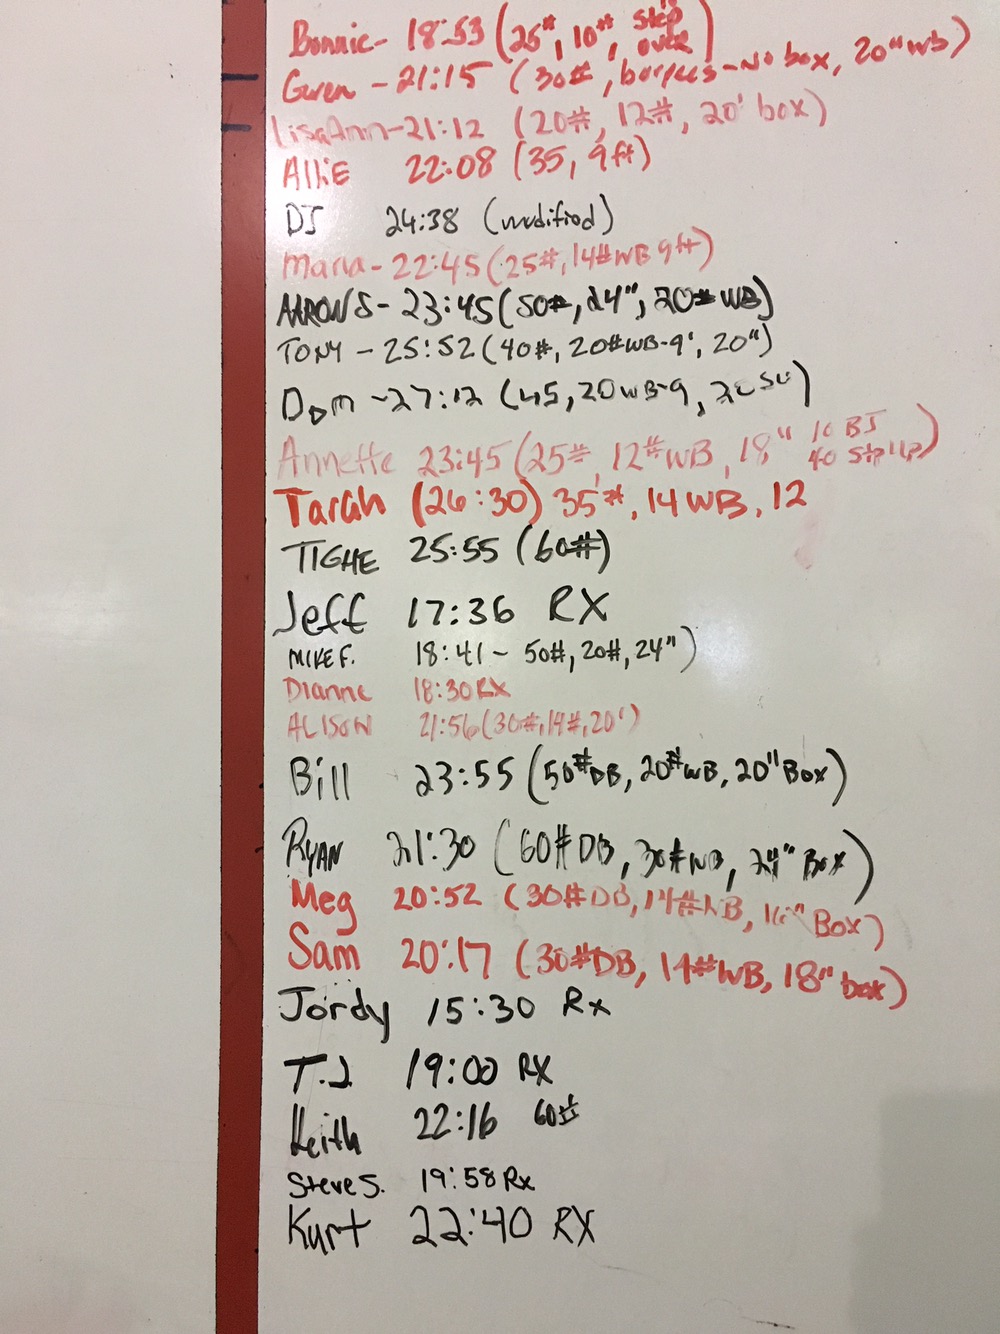 Bonnie- 18:53 (25#, 10#, step over)
Gwen - 21:15 (30#, burpees-No box, 20" WB)
LisaAnn-21:12 (20#, 12#, 20' box)
AlliE 22:08 (35, 9ft)
DJ 24:38 (modified)
Maria- 22:45 (25#, 14#WB 9ft)
AARON S- 23:45 (50#, 24", 20# WB)
TONY - 25:52 (40#, 20#WB-9', 20")
Dom -27:12 (45, 20WB-9, 20 SU)
Annette 23:45 (25#, 12#WB, 18" 10 BJ 40 StpUp)
Tarah (26:30) 35#, 14 WB, 12
TIGHE 25:55 (60#)
Jeff 17:36 RX
MIKE F. 18:41 - 50#, 20#, 24")
Dianne 18:30 RX
ALISON 21:56 (30#, 14#, 20')
Bill 23:55 (50#DB, 20#WB, 20" Box)
RYAN 21:30 (60# DB, 30#WB, 24" Box)
Meg 20:52 (30#DB, 14#WB, 16" Box)
Sam 20:17 (30#DB, 14#WB, 18" box)
Jordy 15:30 Rx
T.J 19:00 RX
Keith 22:16 60#
Steve S. 19:58 Rx
Kurt 22:40 RX